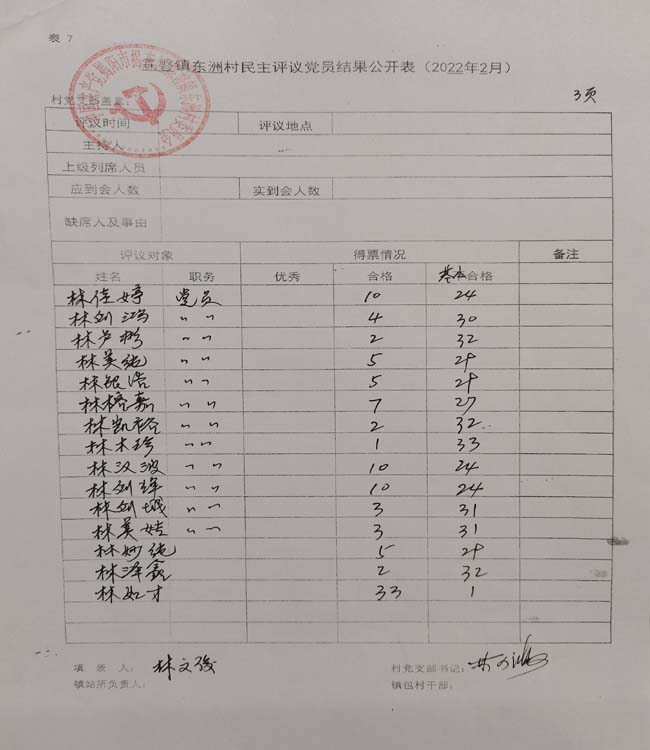 表 7
磐镇东洲村民主评议党员结果公开表（2022年2月）
村党支部盖章：
3页
评议时间 评议地点
主持人
上级列席人员
应到会人数 实到会人数
缺席人及事由
评议对象 得票情况 备注
姓名 职务 优秀 合格 基本合格
林佳婷 党员 10 24
林剑鸿 〃 〃 4 30
林芦彬 〃 〃 2 32
林美纯 〃 〃 5 29
林银浩 〃 〃 5 29
林榕嘉 〃 〃 7 27
林凯 〃 〃 2 32
林木珍 〃 〃 1 33
林汉波 〃 〃 10 24
林剑锋 〃 〃 10 24
林剑城 〃 〃 3 31
林美 〃 〃 3 31
林妙纯 5 29
林泽鑫 2 32
林如才 33 1
填 表 人： 林文
村党支部书记：
镇站所负责人：
镇包村干部：